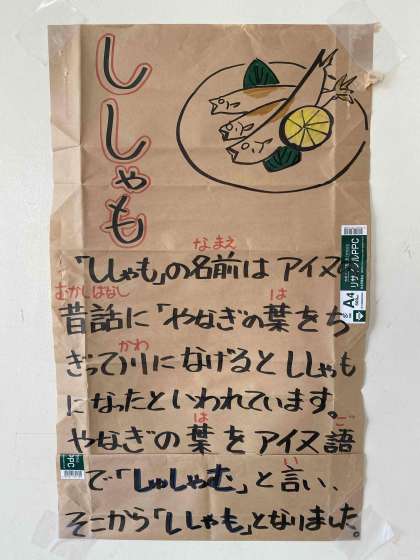 ししゃも
「ししゃも」の名前は アイヌの
なまえ
昔話に「やなぎの葉をち
むかしばなし
は
ぎって川になげると ししゃも
かわ
になったといわれています。
やなぎの葉をアイヌ語
は
ご
で「しゅしゃむ」と言い、
い
そこから「ししゃも」となりました。
リサイクルPPC
A4
PPC